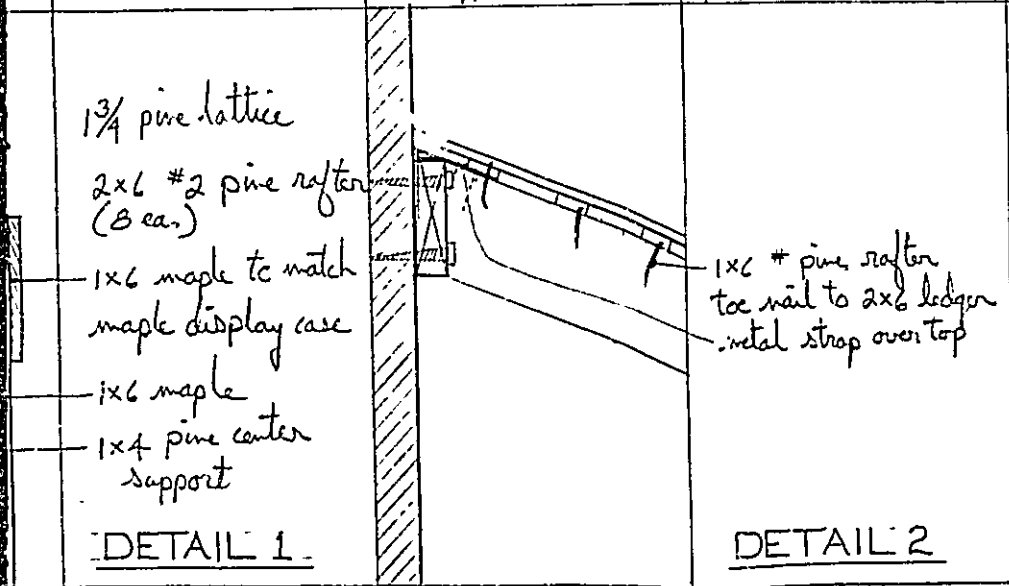 1 3/4 pine lattice
2x6 #2 pine rafter
(8 ea.)
1x6 maple to match
maple display case
1x6 maple
1x4 pine center
support
DETAIL 1
1x6 # pine rafter
toe nail to 2x6 ledger
metal strap over top
DETAIL 2